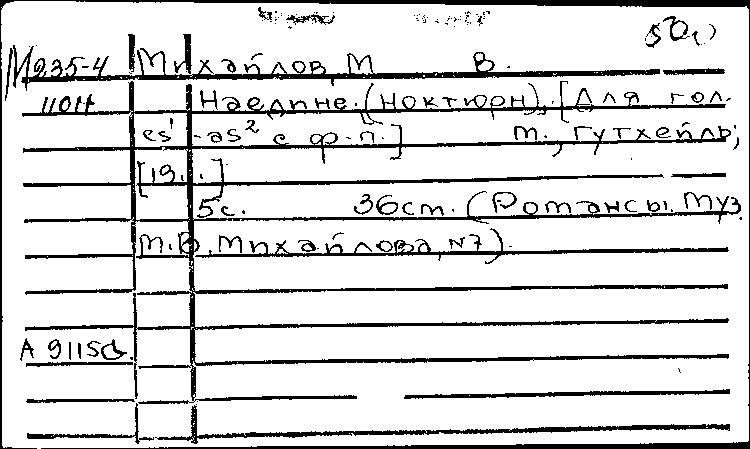 50
М235-4 Михайлов, М В.
1101 Наедине. (Ноктюрн). [Для гол.
es¹-as² с ф-п.] М., Гутхейль,
[19..]
5с. 36см. (Романсы муз.
М.В. Михайлова, N7).
А 9115